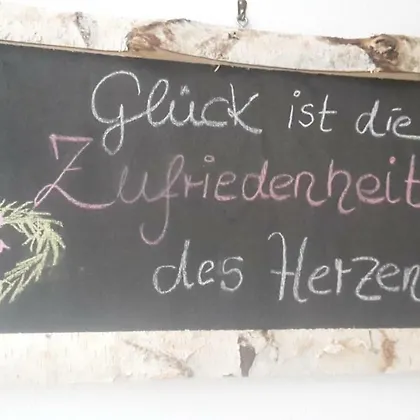 Glück ist die
Zufriedenheit
des Herzen